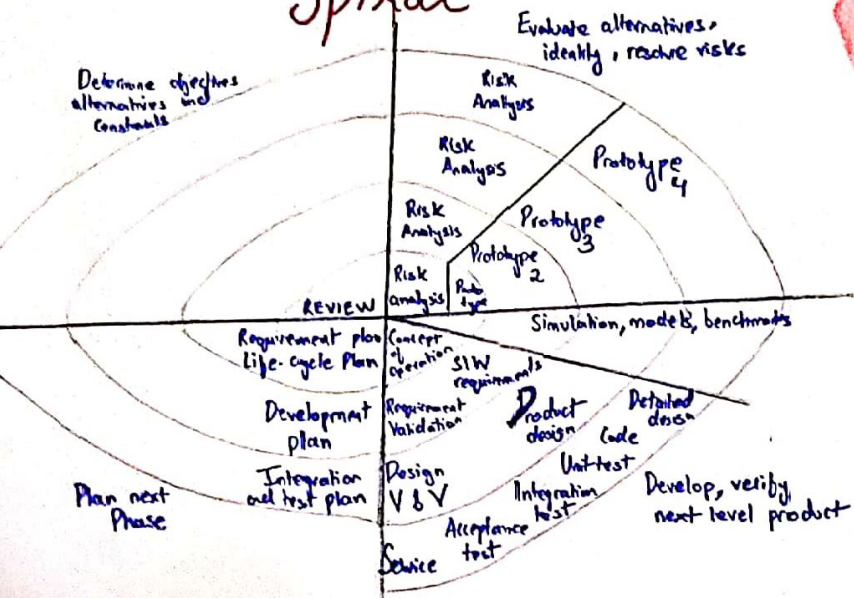 Spiral
Evaluate alternatives,
identify, resolve risks
Determine objectives
alternatives and
constraints
Risk
Analysis
Risk
Analysis
Prototype
4
Risk
Analysis
Prototype
3
Prototype
2
Risk
analysis
Proto
type
REVIEW
Simulation, models, benchmarks
Requirement plan
Life-cycle Plan
Concept
of
operation
S/W
requirements
Development
plan
Requirement
Validation
Product
design
Detailed
design
Code
Integration
and test plan
Design
V & V
Unit test
Integration
test
Plan next
Phase
Develop, verify
next level product
Acceptance
test
Service